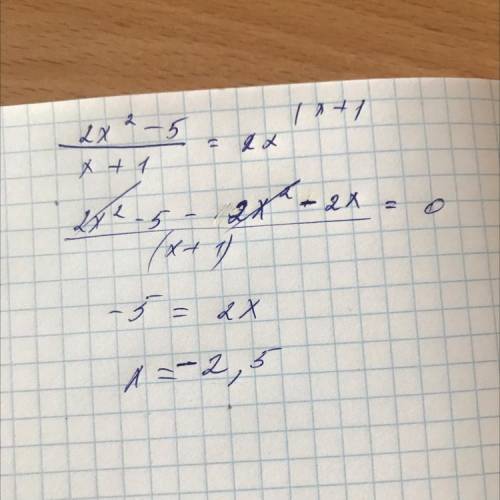 (2x² - 5)/(x + 1) = 2x |x+1
(2x² - 5 - 2x² - 2x)/(x+1) = 0
-5 = 2x
x = -2,5